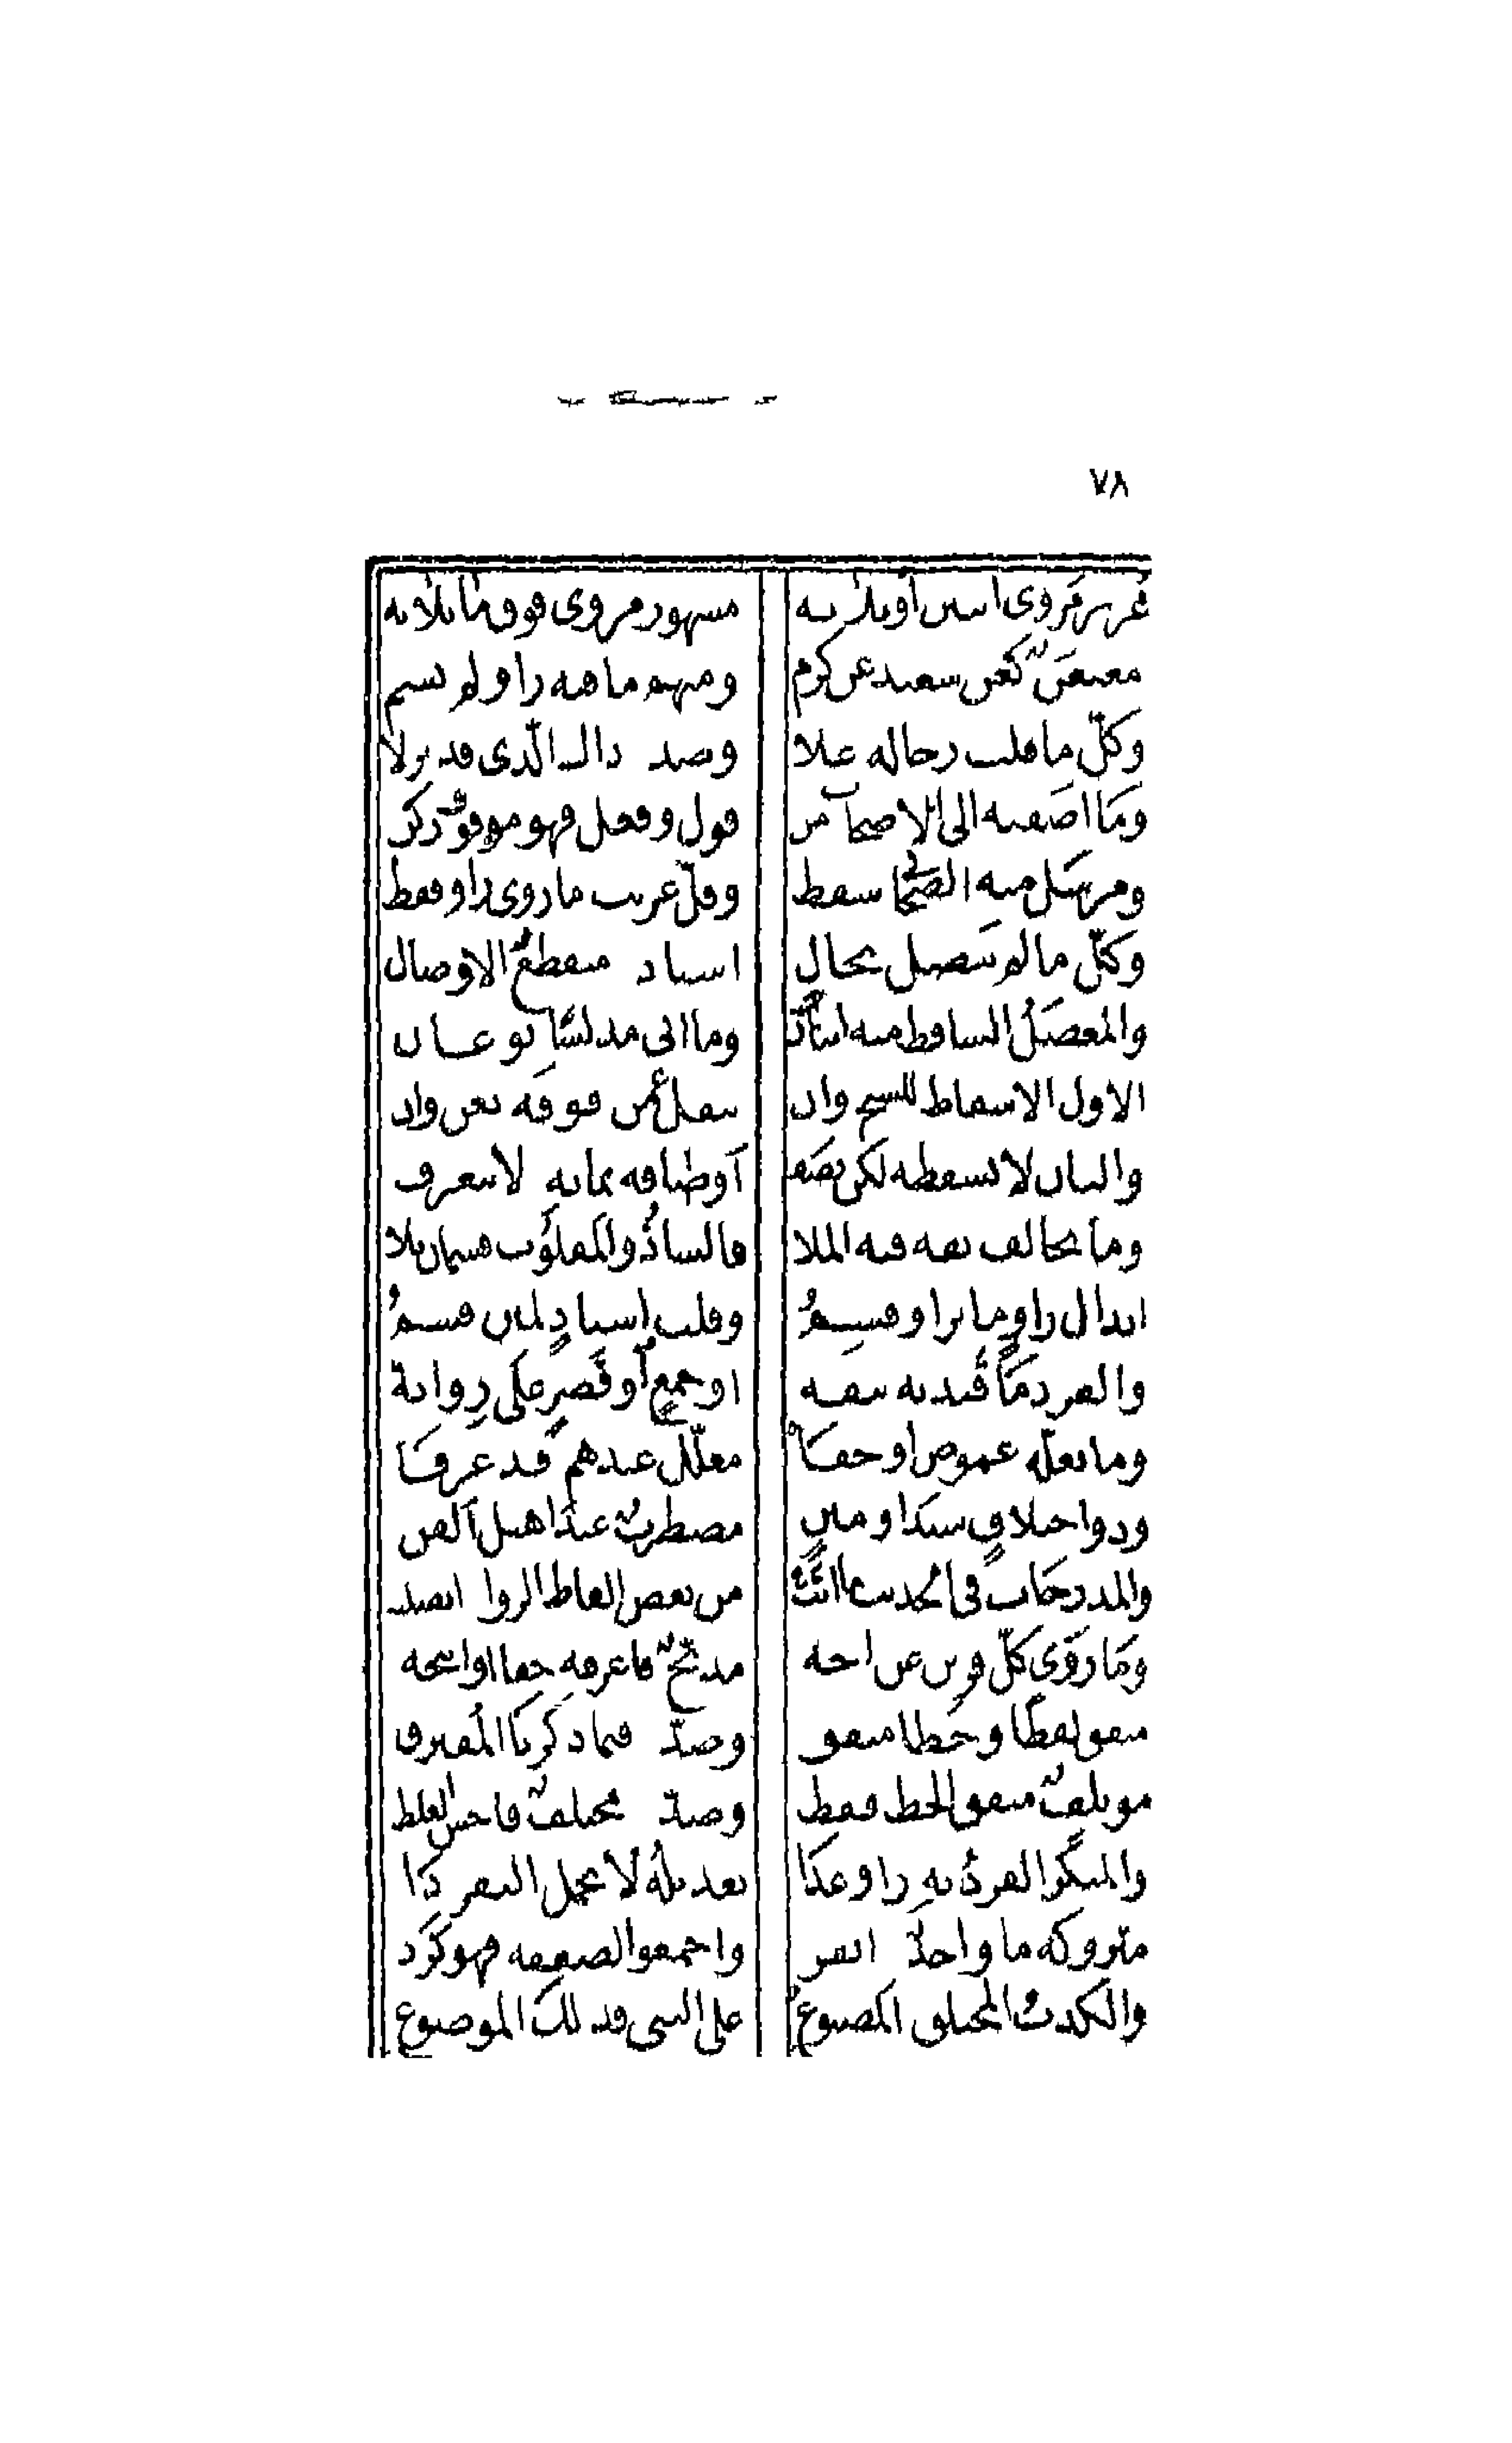 ٧٨
عزيز مروى اثنين أو ثلاثه مشهور مروى فوق ما ثلاثه
معنعن كعن سعيد عن كرم ومبهم ما فيه راو لم يسم
وكلّ ما قلت رجاله علا وضد ذاك الّذى قد نزلا
وما اضفته الى الاصحاب من قول وفعل فهو موقوف زكن
ومرسل منه الصحابى سقط وقل غريب ما روى راو فقط
وكلّ ما لم يتصل بحال اسناد منقطع الاوصال
والمعضل الساقط منه اثنان وما اتى مدلسا نوعان
الاول الاسقاط للشيخ وان ينقل عمن فوقه بعن وان
والثان لا يسقطه لكن يصف أوصافه بما به لا ينعرف
وما يخالف ثقه فيه الملا فالشاذ والمقلوب قسمان تلا
ابدال راو ما براو قسم وقلب اسناد لمتن قسم
والفرد ما قيدته بثقه او جمع أو قصر على رواية
وما بعلّه غموض او خفا معلّل عندهم قد عرفا
وذو اختلاف سند او متن مضطرب عند اهيل الفن
والمدرجات فى الحديث ما اتت من بعض الفاظ الروا اتصلت
وما روى كلّ قرين عن اخه مدبّج فاعرفه حقا وانتخه
متفق لفظا وخطا متفق وضدّ فيما ذكرنا المفترق
موتلف متفق الخط فقط وضدّ مختلف فاخش الغلط
والمنكر الفرد به راو غدا تعديله لا يحمل التفردا
متروكه ما واحد انفرد واجمعوا لضعفه فهو كرد
والكذب المختلق المصنوع على النبى فذلك الموضوع